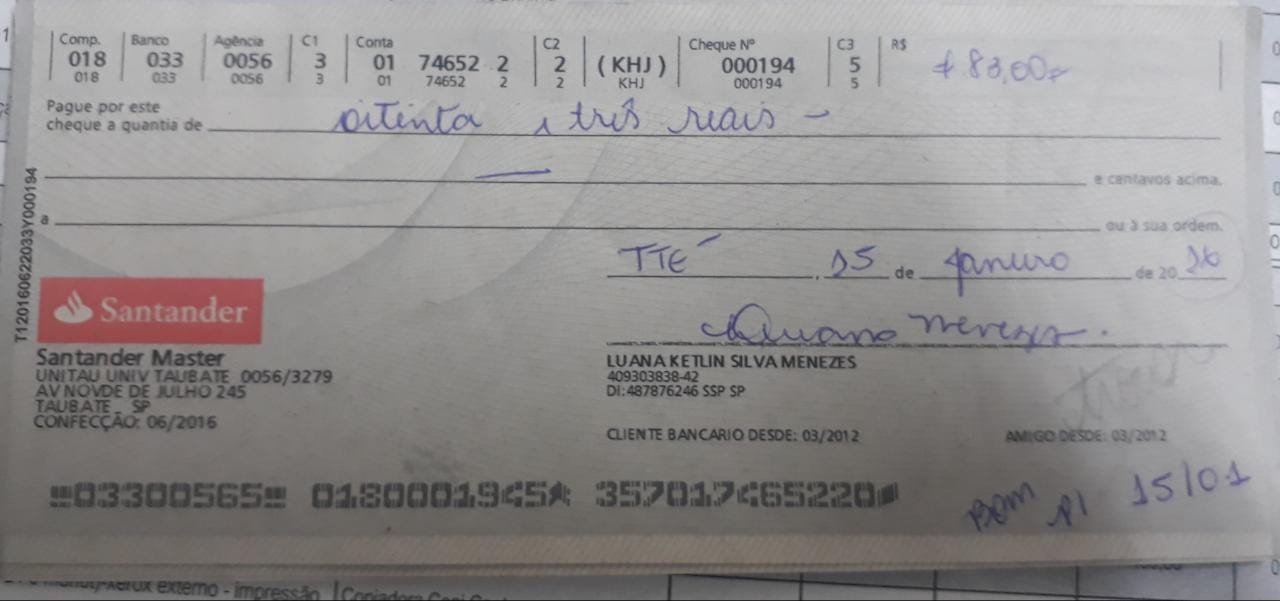 Comp. Banco Agência C1 Conta C2 Cheque Nº C3 R$
018 033 0056 3 01 74652 2 2 (KHJ) 000194 5 # 83,00
018 033 0056 3 01 74652 2 2 KHJ 000194 5
Pague por este
cheque a quantia de oitenta e três reais —
e centavos acima.
a ou à sua ordem.
TTÉ, 15 de Janeiro de 20
T120160622033Y000194
Santander
Luana Menezes.
Santander Master
UNITAU UNIV TAUBATE 0056/3279
AV NOVDE DE JULHO 245
TAUBATE SP
CONFECÇÃO: 06/2016
LUANA KETLIN SILVA MENEZES
409303838-42
DI:487876246 SSP SP
CLIENTE BANCARIO DESDE: 03/2012 AMIGO DESDE: 03/2012
03300565 0180001945 357017465220
Bom p/ 15/01
externo - impressão